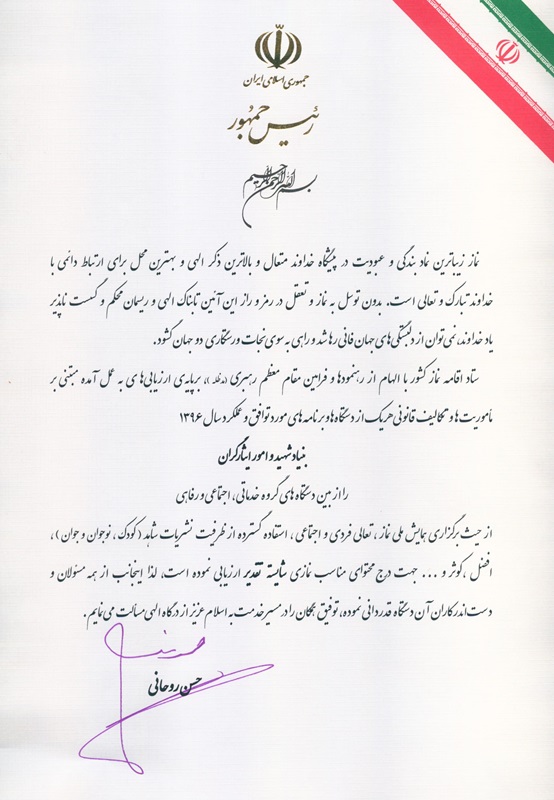 جمهوری اسلامی ایران
رئیس جمهور
بسم الله الرحمن الرحیم
نماز زیباترین نماد بندگی و عبودیت در پیشگاه خداوند متعال و بالاترین ذکر الهی و بهترین محمل برای ارتباط دائمی با
خداوند تبارک و تعالی است. بدون توسل به نماز و تعقل در رمز و راز این آئین تابناک الهی و ریسمان محکم و گسست ناپذیر
یاد خداوند، نمی‌توان از دلبستگی‌های جهان فانی رها شد و راهی به سوی نجات و رستگاری دو جهان گشود.
ستاد اقامه نماز کشور با الهام از رهنمودها و فرامین مقام معظم رهبری (مدظله)، برپایه‌ی ارزیابی‌های به عمل آمده مبتنی بر
مأموریت‌ها و تکالیف قانونی هر یک از دستگاه‌ها و برنامه‌های مورد توافق و عملکرد سال ۱۳۹۶
بنیاد شهید و امور ایثارگران
را از بین دستگاه‌های گروه خدماتی، اجتماعی و رفاهی
از حیث برگزاری همایش ملی نماز، تعالی فردی و اجتماعی، استفاده گسترده از ظرفیت نشریات شاهد (کودک، نوجوان و جوان)،
افضل، کوثر و ... جهت درج محتوای مناسب نمازی شایسته تقدیر ارزیابی نموده است، لذا اینجانب از همه مسئولان و
دست‌اندرکاران آن دستگاه قدردانی نموده، توفیق همگان را در مسیر خدمت به اسلام عزیز از درگاه الهی مسألت می‌نمایم.
حسن روحانی